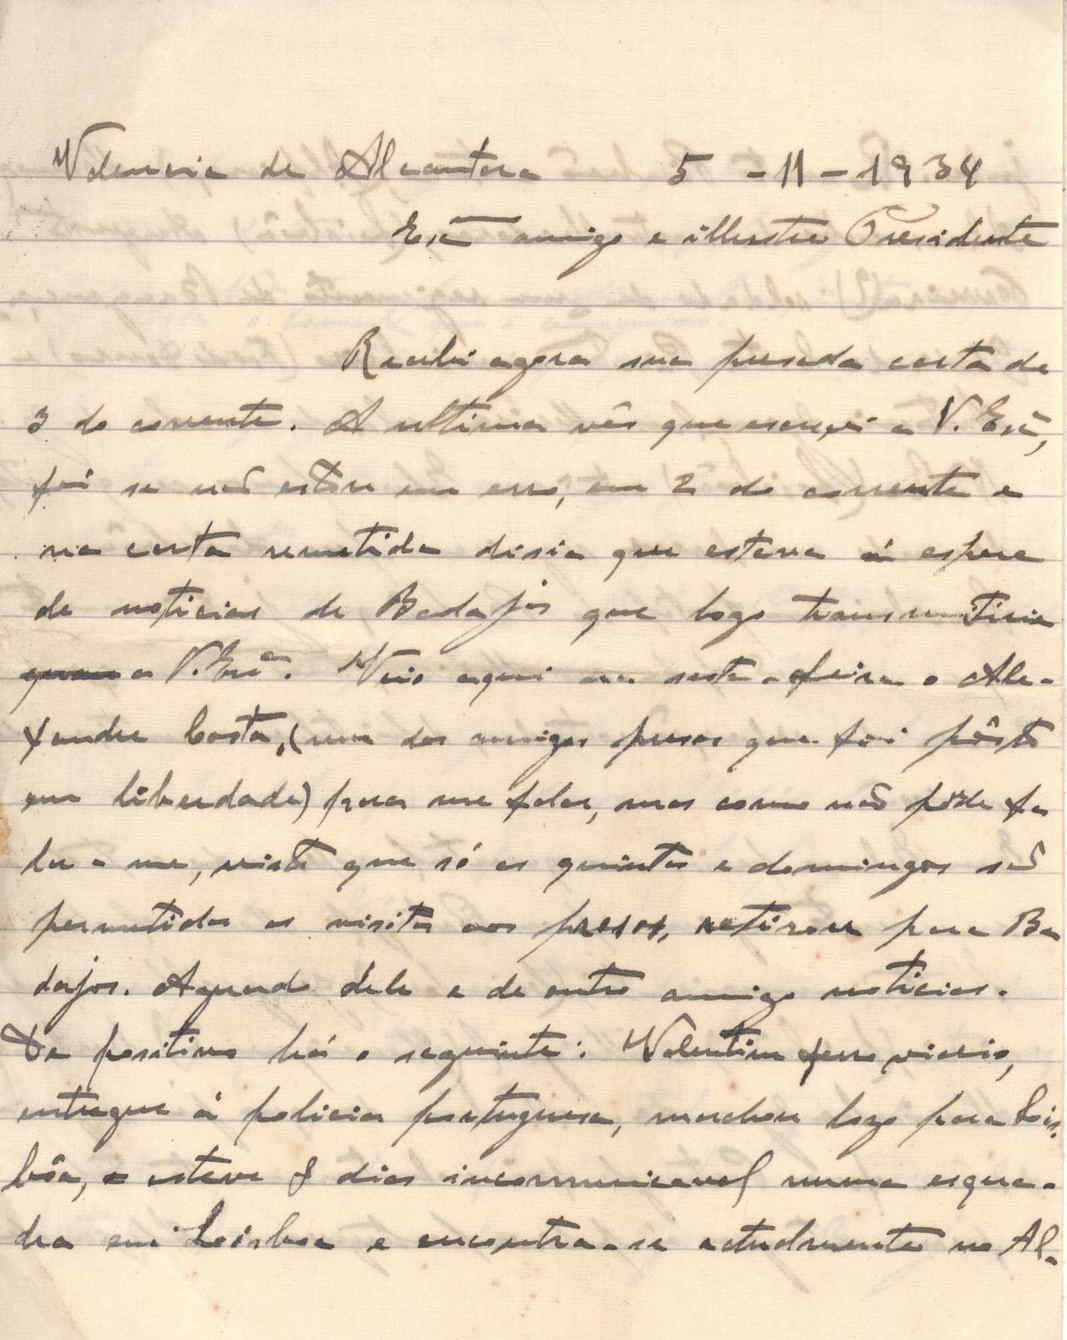 Valencia de Alcantara 5-11-1934
Exmº amigo e illustre Presidente
Recebi agora sua presada carta de
3 do corrente. A ultima vês que escrevi a V. Exª,
foi se não estou em erro, em 2 do corrente e
na carta remetida disia que estava á espera
de noticias de Badajós que logo transmitiria
a V. Exª. Veio aqui na sexta-feira o Ale-
xandre Costa, (um dos amigos presos que foi pôsto
em liberdade) para me falar, mas como não pôde fa
lar-me, visto que só as quintas e domingos são
permitidas as visitas aos presos, retirou para Ba
dajos. Aguardo dele e de outro amigo noticias.
De positivo há o seguinte: Valentim ferroviario,
entregue á policia portuguesa, marchou logo para Lis-
bôa, e esteve 8 dias incomunicavel numa esqua-
dra em Lisboa e encontra-se actualmente no Al-